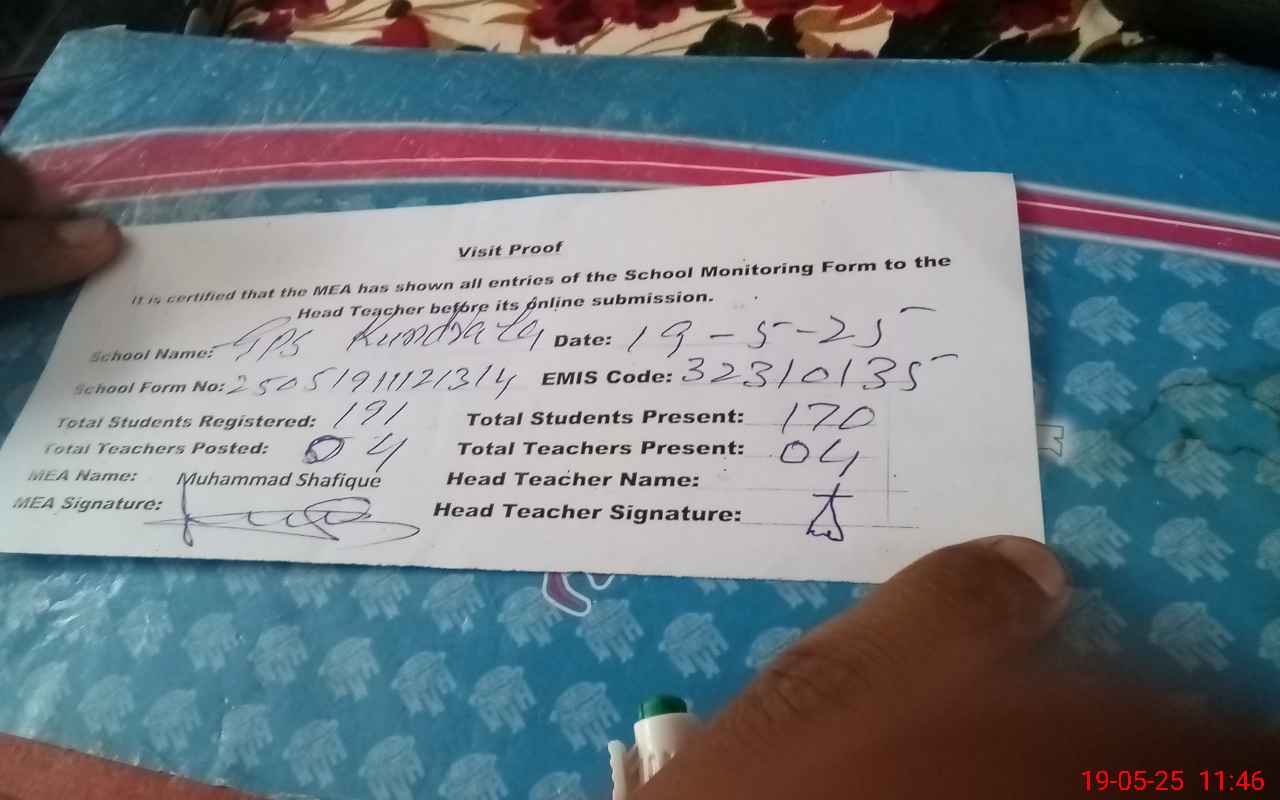 Visit Proof
It is certified that the MEA has shown all entries of the School Monitoring Form to the
Head Teacher before its online submission.
School Name: GPS Date: 19-5-25
School Form No: 25051911121314 EMIS Code: 32310135
Total Students Registered: 191 Total Students Present: 170
Total Teachers Posted: 04 Total Teachers Present: 04
MEA Name: Muhammad Shafique Head Teacher Name:
MEA Signature: Head Teacher Signature:
19-05-25 11:46